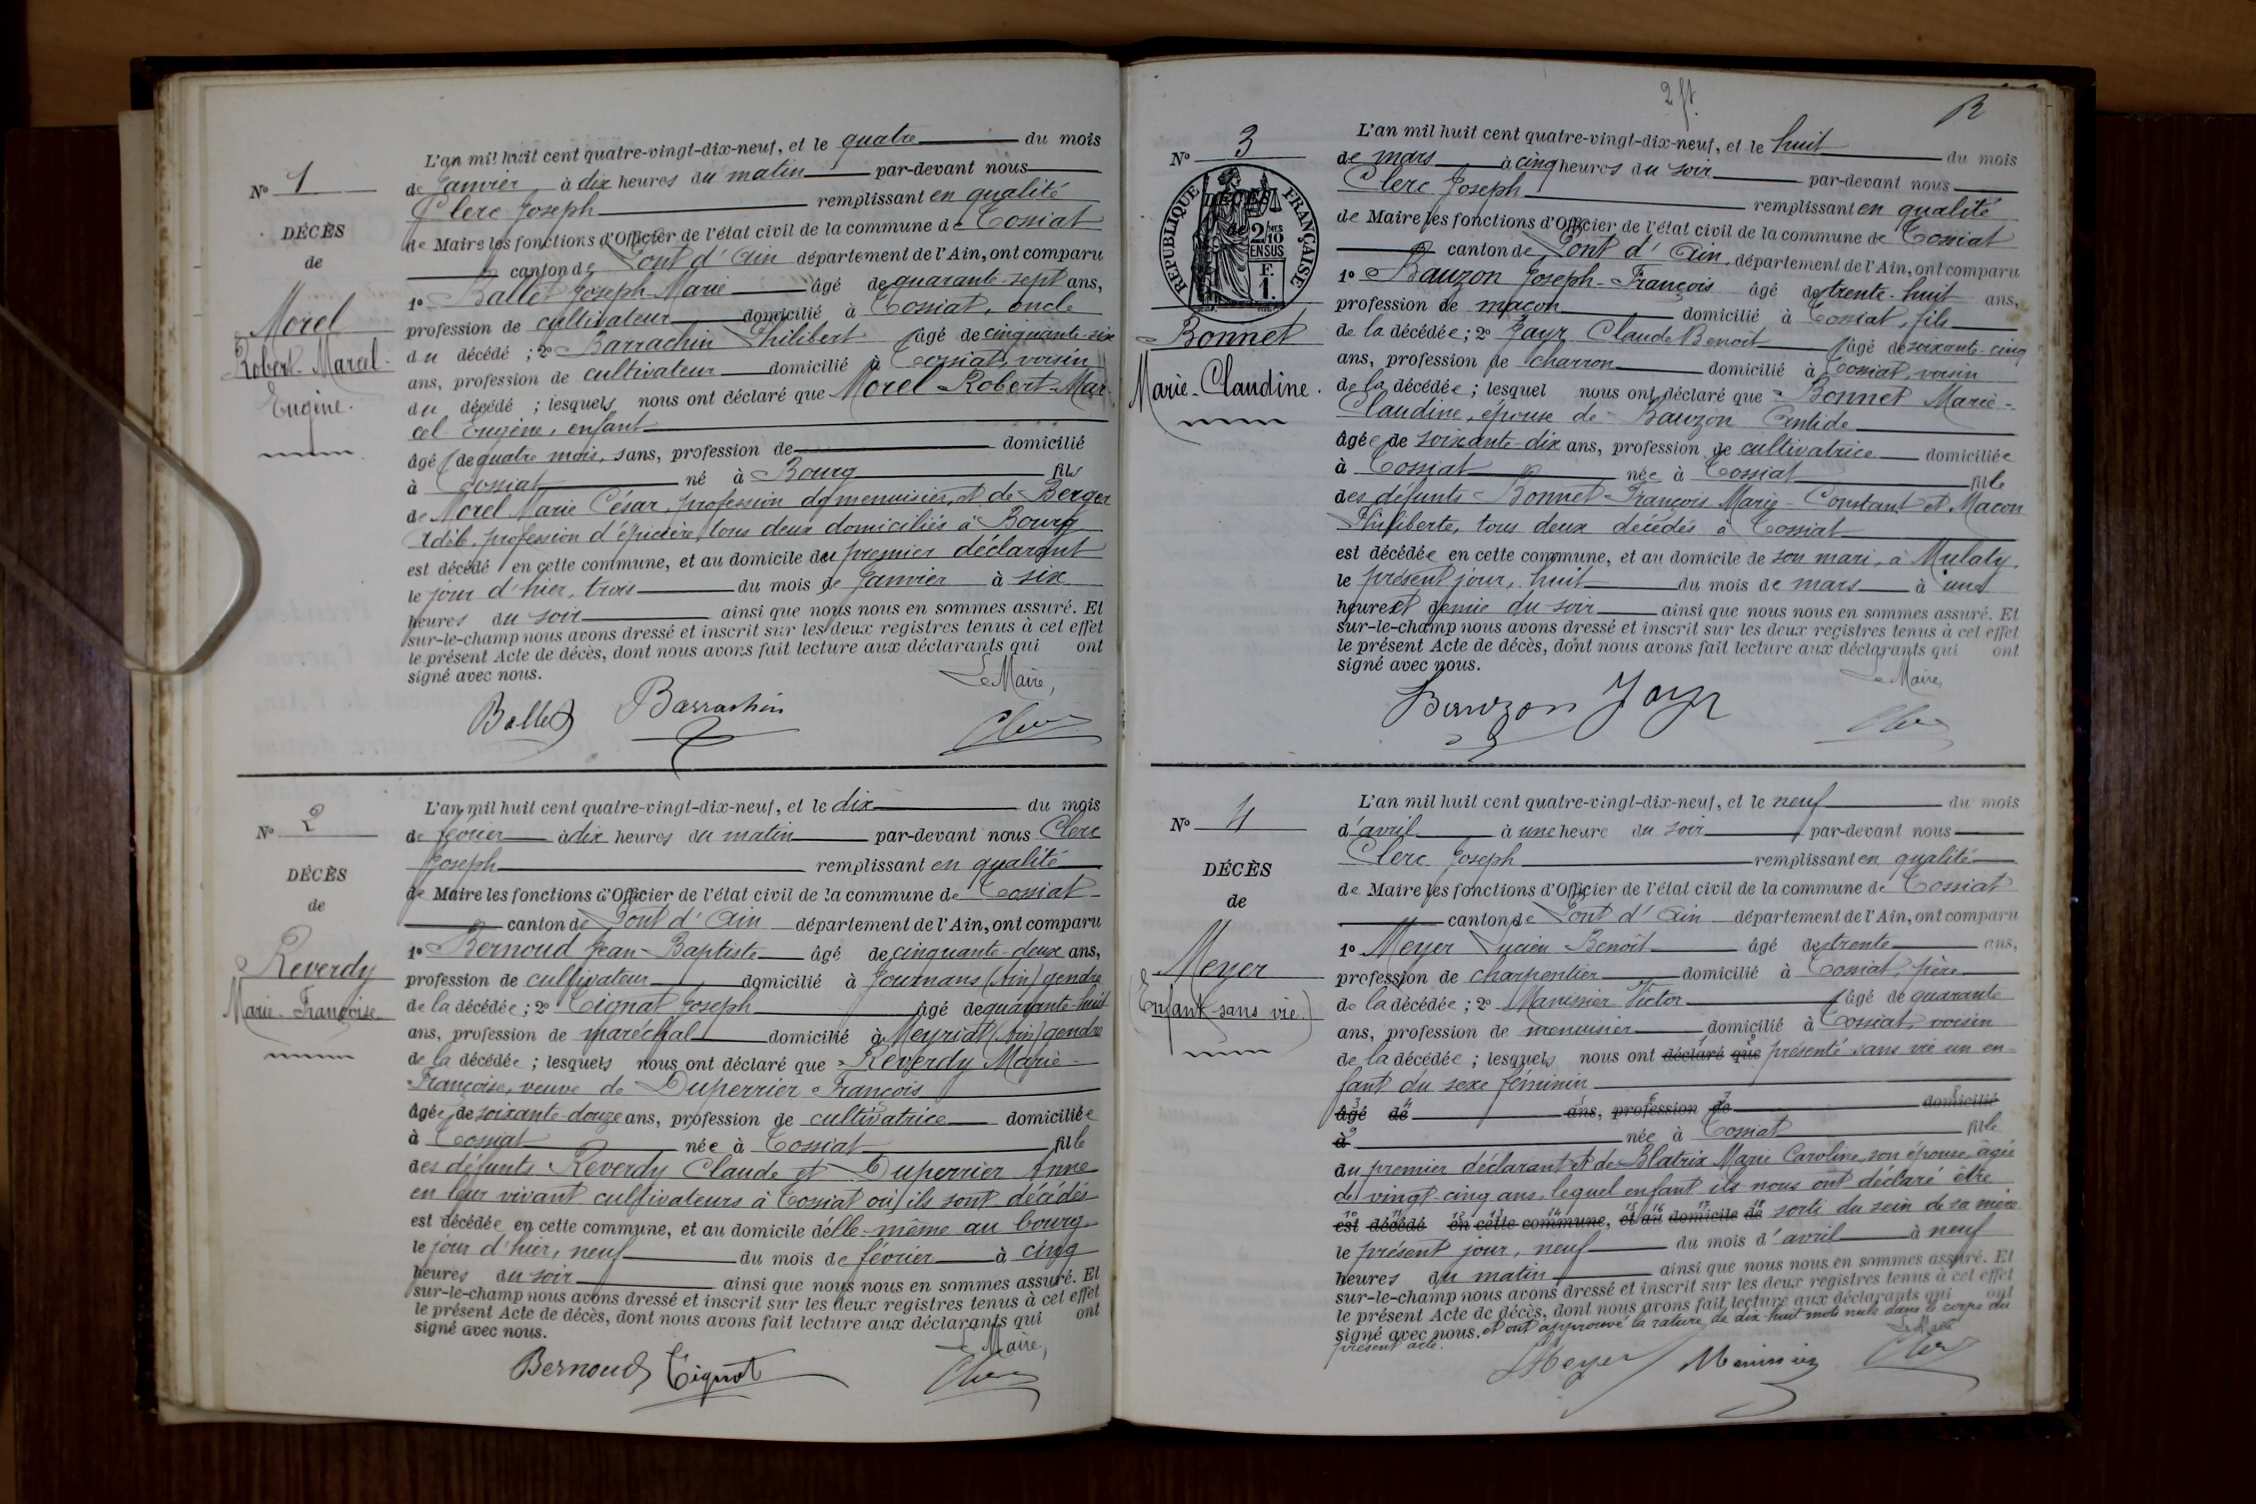 N° 1
DÉCÈS
de
Morel
Robert-Marcel-
Eugène.
L'an mil huit cent quatre-vingt-dix-neuf, et le quatre du mois
de Janvier à dix heures du matin par-devant nous
Clerc Joseph remplissant en qualité
de Maire les fonctions d'Officier de l'état civil de la commune de Tossiat
canton de Pont d'Ain département de l'Ain, ont comparu
1° Ballet Joseph Marie âgé de quarante-sept ans,
profession de cultivateur domicilié à Tossiat, oncle
du décédé ; 2° Barrachin Philibert âgé de cinquante-six
ans, profession de cultivateur domicilié à Tossiat, voisin
du décédé ; lesquels nous ont déclaré que Morel Robert-Mar-
cel Eugène, enfant
âgé de quatre mois, sans, profession de domicilié
à Tossiat né à Bourg fils
de Morel Marie César, profession de menuisier, et de Berger
profession d'épicière tous deux domiciliés à Bourg
est décédé en cette commune, et au domicile du premier déclarant
le jour d'hier, trois du mois de Janvier à six
heures du soir ainsi que nous nous en sommes assuré. Et
sur-le-champ nous avons dressé et inscrit sur les deux registres tenus à cet effet
le présent Acte de décès, dont nous avons fait lecture aux déclarants qui ont
signé avec nous.
Le Maire,
Ballet Barrachin Clerc
N° 2
DÉCÈS
de
Reverdy
Marie-Françoise
L'an mil huit cent quatre-vingt-dix-neuf, et le dix du mois
de février à dix heures du matin par-devant nous Clerc
Joseph remplissant en qualité
de Maire les fonctions d'Officier de l'état civil de la commune de Tossiat
canton de Pont d'Ain département de l'Ain, ont comparu
1° Bernoud Jean-Baptiste âgé de cinquante-deux ans,
profession de cultivateur domicilié à Journans (Ain) gendre
de la décédée ; 2° Tignat Joseph âgé de quarante-huit
ans, profession de maréchal domicilié à Meyriat (Ain) gendre
de la décédée ; lesquels nous ont déclaré que Reverdy Marie-
Françoise, veuve de Duperrier François
âgée de soixante-douze ans, profession de cultivatrice domiciliée
à Tossiat née à Tossiat fille
des défunts Reverdy Claude et Duperrier Anne
en leur vivant cultivateurs à Tossiat où ils sont décédés
est décédée en cette commune, et au domicile d'elle-même au bourg
le jour d'hier, neuf du mois de février à cinq
heures du soir ainsi que nous nous en sommes assuré. Et
sur-le-champ nous avons dressé et inscrit sur les deux registres tenus à cet effet
le présent Acte de décès, dont nous avons fait lecture aux déclarants qui ont
signé avec nous.
Le Maire,
Bernoud Tignat Clerc
2 ft.
N° 3
DÉCÈS
de
RÉPUBLIQUE FRANÇAISE
2/10 EN SUS
F. 1.
Bonnet
Marie-Claudine.
L'an mil huit cent quatre-vingt-dix-neuf, et le huit du mois
de mars à cinq heures du soir par-devant nous
Clerc Joseph remplissant en qualité
de Maire les fonctions d'Officier de l'état civil de la commune de Tossiat
canton de Pont d'Ain, département de l'Ain, ont comparu
1° Bauzon Joseph-François âgé de trente-huit ans,
profession de maçon domicilié à Tossiat, fils
de la décédée ; 2° Jayr Claude Benoît âgé de soixante-cinq
ans, profession de charron domicilié à Tossiat, voisin
de la décédée ; lesquel nous ont déclaré que Bonnet Marie-
Claudine, épouse de Bauzon Antide
âgée de soixante-dix ans, profession de cultivatrice domiciliée
à Tossiat née à Tossiat fille
des défunts Bonnet François Marie-Constant et Macon
Philiberte, tous deux décédés à Tossiat
est décédée en cette commune, et au domicile de son mari, à Mulaty,
le présent jour, huit du mois de mars à une
heure et demie du soir ainsi que nous nous en sommes assuré. Et
sur-le-champ nous avons dressé et inscrit sur les deux registres tenus à cet effet
le présent Acte de décès, dont nous avons fait lecture aux déclarants qui ont
signé avec nous.
Le Maire,
Bauzon Jayr Clerc
N° 4
DÉCÈS
de
Meyer
(Enfant sans vie.)
L'an mil huit cent quatre-vingt-dix-neuf, et le neuf du mois
d'avril à une heure du soir par-devant nous
Clerc Joseph remplissant en qualité
de Maire les fonctions d'Officier de l'état civil de la commune de Tossiat
canton de Pont d'Ain département de l'Ain, ont comparu
1° Meyer Lucien Benoît âgé de trente ans,
profession de charpentier domicilié à Tossiat, père
de la décédée ; 2° Manissier Victor âgé de quarante
ans, profession de menuisier domicilié à Tossiat, voisin
de la décédée ; lesquels nous ont déclaré que présenté sans vie un en-
fant du sexe féminin
âgé de ans, profession de domicilié
à née à Tossiat fille
du premier déclarant et de Blatrix Marie Caroline, son épouse, âgée
de vingt-cinq ans, lequel enfant ils nous ont déclaré être
est décédé en cette commune, et au domicile de sorti du sein de sa mère
le présent jour, neuf du mois d'avril à neuf
heures du matin ainsi que nous nous en sommes assuré. Et
sur-le-champ nous avons dressé et inscrit sur les deux registres tenus à cet effet
le présent Acte de décès, dont nous avons fait lecture aux déclarants qui ont
signé avec nous. et ont approuvé la rature de dix-huit mots nuls dans le corps du
présent acte.
Le Maire
Meyer Manissier Clerc